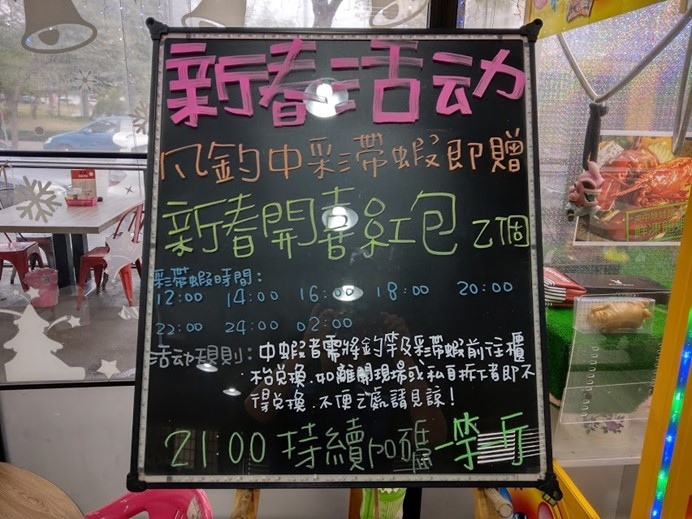 新春活动
凡釣中彩帶蝦即贈
新春開喜紅包乙個
彩帶蝦時間:
12:00 14:00 16:00 18:00 20:00
22:00 24:00 02:00
活动規則: 中蝦者需將釣竿及彩帶蝦前往櫃
枱兌換.如離開現場或私自拆者即不
得兌換.不便之處請見諒!
21:00 持續加碼一竿一斤